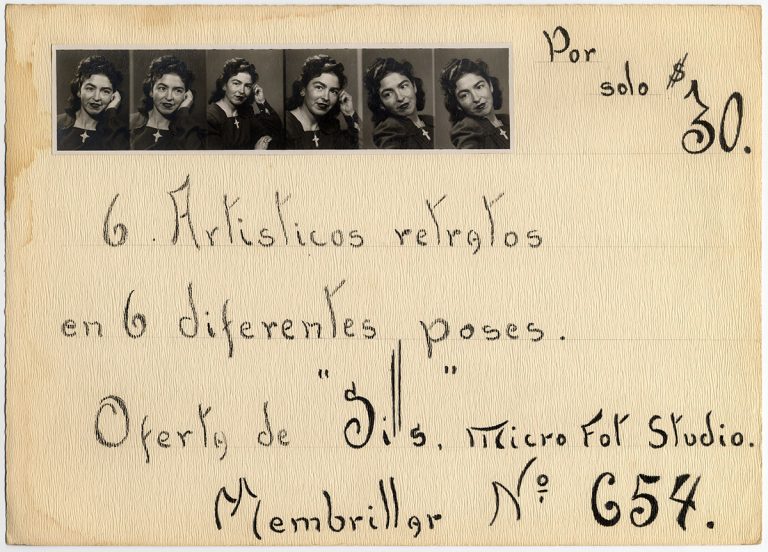 Por
solo $
30.
6. Artisticos retratos
en 6 diferentes poses.
Oferta de "Sills, Micro Fot Studio.
Membrillar Nº 654.